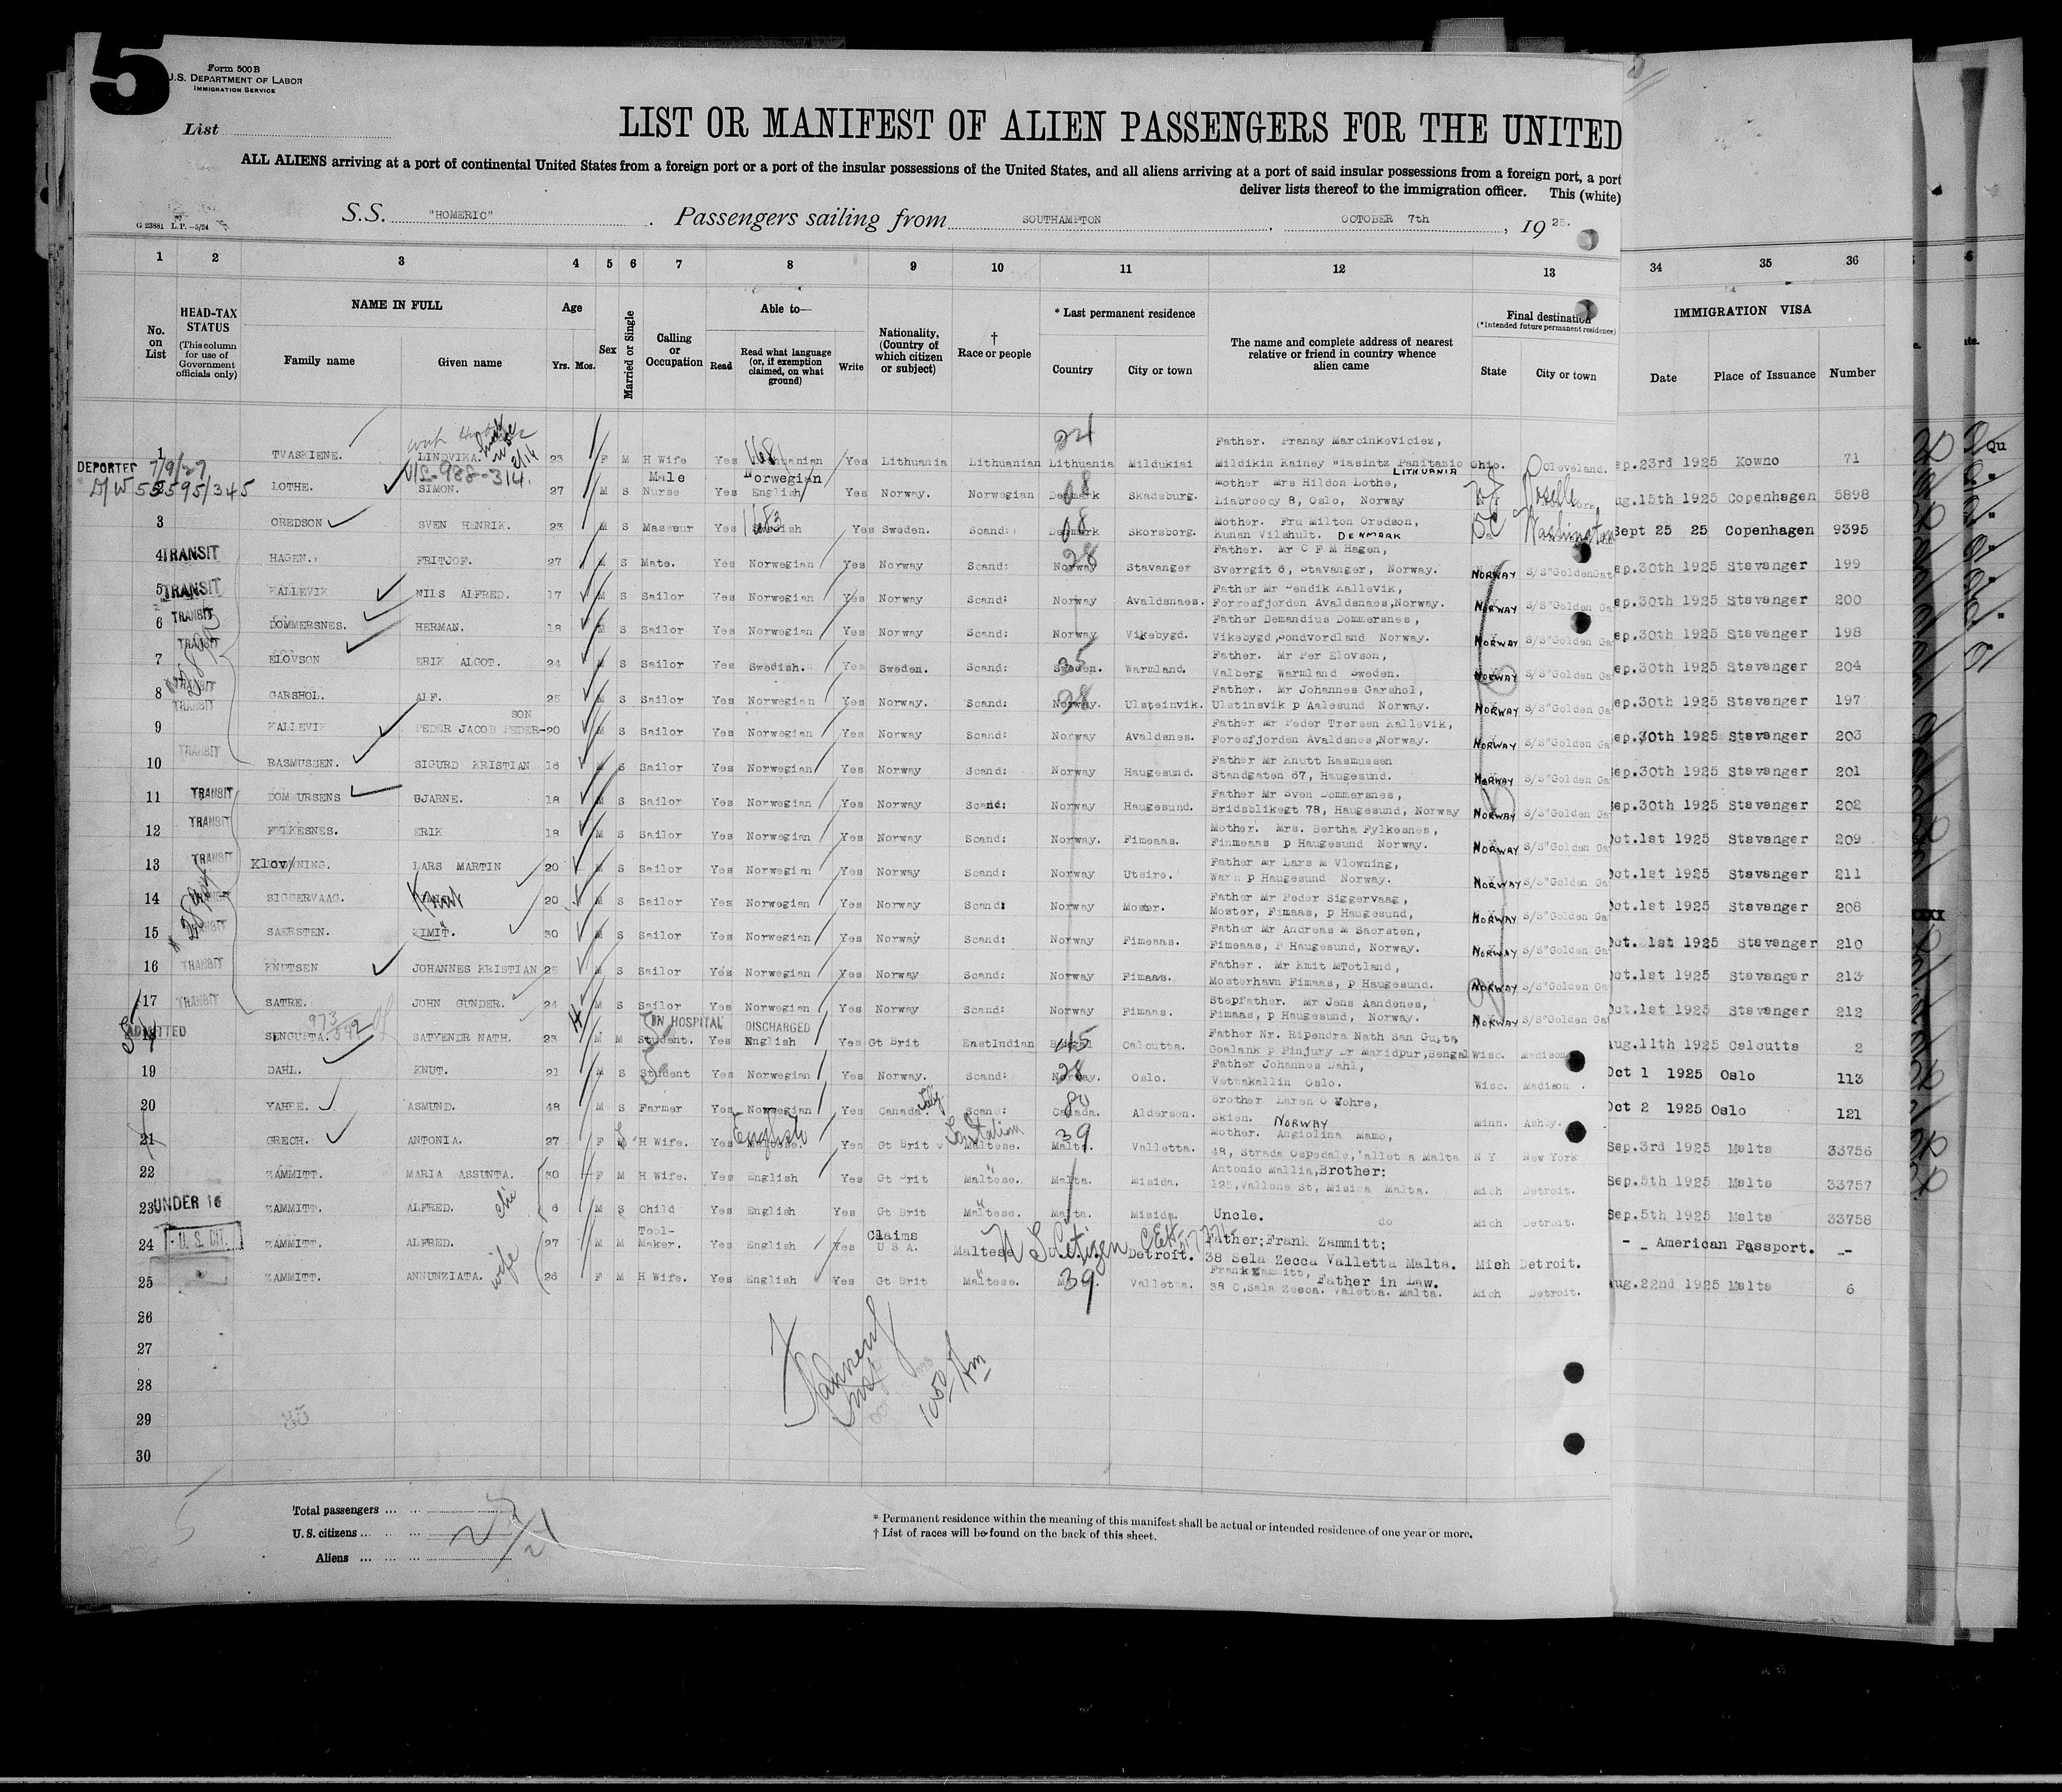 5
Form 500 B
U.S. DEPARTMENT OF LABOR
IMMIGRATION SERVICE
List
LIST OR MANIFEST OF ALIEN PASSENGERS FOR THE UNITED
ALL ALIENS arriving at a port of continental United States from a foreign port or a port of the insular possessions of the United States, and all aliens arriving at a port of said insular possessions from a foreign port, a port
deliver lists thereof to the immigration officer. This (white)
S.S. "HOMERIC" . Passengers sailing from SOUTHAMPTON . OCTOBER 7th , 19 25.
G 23881 L.P.—5/24
1 2 3 4 5 6 7 8 9 10 11 12 13 34 35 36
No. on List
HEAD-TAX STATUS (This column for use of Government officials only)
NAME IN FULL
Family name Given name
Age Yrs. Mos.
Sex
Married or Single
Calling or Occupation
Able to—
Read Read what language (or, if exemption claimed, on what ground) Write
Nationality, (Country of which citizen or subject)
† Race or people
* Last permanent residence
Country City or town
The name and complete address of nearest relative or friend in country whence alien came
Final destination (*Intended future permanent residence)
State City or town
IMMIGRATION VISA
Date Place of Issuance Number
24
Father. Pranay Marcinkeviciez,
1 TVASKIENE. LINDVIKA. 23 F M H Wife Yes Lithuanian Yes Lithuania Lithuanian Lithuania Mildukiai Mildikin Rainey Wiasintz Panitazio Ohio. Cleveland. ep.23rd 1925 Kowno 71
LITHUANIA
DEPORTED 7/9/27 V/L-988-314. Male Norwegian
D/W 55595/345
Mother Mrs Hildon Lothe,
2 LOTHE. SIMON. 27 M S Nurse Yes English Yes Norway. Norwegian Denmark 08 Skadsburg. Liabroocy 8, Oslo, Norway NJ Roselle ug.15th 1925 Copenhagen 5898
Mother. Fru Milton Oredson,
3 OREDSON SVEN HENRIK. 23 M S Masseur Yes Swedish 1683 Yes Sweden. Scand: Denmark 08 Skorsborg. Kunan Vilshult. DENMARK DC Washington Sept 25 25 Copenhagen 9395
Father. Mr O F M Hagen,
4 TRANSIT HAGEN. FRITJOF. 27 M S Mate. Yes Norwegian Yes Norway Scand: Norway 28 Stavanger Sverrgit 6, Stavanger, Norway. NORWAY S/S"GoldenGat ep.30th 1925 Stavanger 199
Father Mr Bendik Kallevik,
5 TRANSIT KALLEVIK NILS ALFRED. 17 M S Sailor Yes Norwegian Yes Norway Scand: Norway Avaldsnaes. Forresfjorden Avaldsnaes,Norway. NORWAY S/S"Golden Ga ep.30th 1925 Stavanger 200
Father Demandius Dommersnes,
6 TRANSIT DOMMERSNES. HERMAN. 18 M S Sailor Yes Norwegian Yes Norway Scand: Norway Vikebygd. Vikebygd,Sondvordland Norway. NORWAY S/S"Golden Ga ep.30th 1925 Stavanger 198
Father. Mr Per Elovson,
7 TRANSIT ELOVSON ERIK ALGOT. 24 M S Sailor Yes Swedish. Yes Sweden. Scand: Sweden. 35 Warmland. Valberg Warmland Sweden. NORWAY S/S"Golden Ga ep.30th 1925 Stavanger 204
Father. Mr Johannes Garshol,
8 TRANSIT GARSHOL. ALF. 25 M S Sailor Yes Norwegian Yes Norway. Scand: Norway. 28 Ulsteinvik. Ulstinsvik p Aalesund Norway. NORWAY S/S"Golden Ga ep.30th 1925 Stavanger 197
TRANSIT SON Father Mr Peder Trersen Kallevik,
9 KALLEVIK PEDER JACOB PEDER- 20 M S Sailor Yes Norwegian Yes Norway Scand: Norway Avaldsnes. Foresfjorden Avaldsnes,Norway. NORWAY S/S"Golden Ga ep.30th 1925 Stavanger 203
TRANSIT Father Mr Knutt Rasmussen
10 RASMUSSEN. SIGURD KRISTIAN 16 M S Sailor Yes Norwegian Yes Norway Scand: Norway Haugesund. Standgaten 67, Haugesund. NORWAY S/S"Golden Ga ep.30th 1925 Stavanger 201
Father Mr Sven Dommersnes,
11 TRANSIT DOMMURSENS GJARNE. 18 M S Sailor Yes Norwegian Yes Norway Scand: Norway Haugesund. Bridsblikegt 78, Haugesund, Norway NORWAY S/S"Golden Ga ep.30th 1925 Stavanger 202
Mother. Mrs. Bertha Fylkesnes,
12 TRANSIT FYLKESNES. ERIK 18 M S Sailor Yes Norwegian Yes Norway Scand: Norway. Fimeaas. Finmeaas p Haugesund Norway. NORWAY S/S"Golden Ga Oct.1st 1925 Stavanger 209
Father Mr Lars M Vlowning,
13 TRANSIT Klov/NING. LARS MARTIN 20 M S Sailor Yes Norwegian Yes Norway Scand: Norway Utsire. Warn p Haugesund Norway. NORWAY S/S"Golden Ga Oct.1st 1925 Stavanger 211
Father Mr Peder Siggervaag,
14 TRANSIT SIGGERVAAG. Knut 20 M S Sailor Yes Norwegian Yes Norway Scand: Norway Moster. Moster, Fimaas, p Haugesund, NORWAY S/S"Golden Ga Oct.1st 1925 Stavanger 208
Father Mr Andreas M Saersten,
15 TRANSIT SAERSTEN. KIMIT. 30 M S Sailor Yes Norwegian Yes Norway Scand: Norway Fimeaas. Fimeaas, P Haugesund, Norway. NORWAY S/S"Golden Ga Oct. 1st 1925 Stavanger 210
Father. Mr Knit MTotland,
16 TRANSIT KNUTSEN JOHANNES KRISTIAN 25 M S Sailor Yes Norwegian Yes Norway Scand: Norway Fimaas. Mosterhavn Fimaas, p Haugesund. NORWAY S/S"Golden Ga Oct.1st 1925 Stavanger 213
Stepfather. Mr Jens Aandenes,
17 TRANSIT SATRE. JOHN GUNDER. 24 M S Sailor Yes Norwegian Yes Norway Scand: Norway Fimaas. Fimaas, p Haugesund, Norway. NORWAY S/S"Golden Ga Oct.1st 1925 Stavanger 212
ADMITTED 973/592 IN HOSPITAL DISCHARGED
Father Nr. Ripendra Nath San Gupta,
18 SENGUPTA. SATYENDR NATH. 23 M M Student. Yes English Yes Gt Brit EastIndian Bengal 45 Calcutta. Goalank p Pinjury Dr Maridpur,Bengal Wisc. Madison Aug.11th 1925 Calcutta 2
Father Johannes Dahl,
19 DAHL. KNUT. 21 M S Student Yes Norwegian Yes Norway. Scand: Norway. 28 Oslo. Vethakallin Oslo. Wisc. Madison. Oct 1 1925 Oslo 113
Brother Laren O Vohre,
20 VAHRE. ASMUND. 48 M S Farmer Yes Norwegian Yes Canada. Scand: Canada. 80 Alderson. Skien. NORWAY Minn. Ashby. Oct 2 1925 Oslo 121
Mother. Angiolina Mamo,
21 GRECH. ANTONIA. 27 F S H Wife. Yes English Yes Gt Brit So Italian Maltese. Malta. 39 Valletta. 48, Strada Ospedale, Valletta Malta N Y New York Sep.3rd 1925 Malta 33756
Antonio Mallia,Brother:
22 ZAMMITT. MARIA ASSUNTA. 30 F M H Wife. Yes English Yes Gt Brit Maltese. Malta. Misida. 125,Vallone St, Misida Malta. Mich Detroit. Sep.5th 1925 Malta 33757
23 UNDER 16 ZAMMITT. ALFRED. 6 M S Child Yes English Yes Gt Brit Maltese. Malta. Misida. Uncle. do Mich Detroit. Sep.5th 1925 Malta 33758
Tool- Claims Father:Frank Zammitt:
24 U. S. CIT. ZAMMITT. ALFRED. 27 M M Maker. Yes English Yes U S A. Maltese U S Citizen Detroit. 38 Sela Zecca Valletta Malta. Mich Detroit. - - American Passport. --
wife Frank Zammitt, Father in Law.
25 ZAMMITT. ANNUNZIATA. 26 F M H Wife. Yes English Yes Gt Brit Maltese. 39 Valletta. 38 C,Sala Zecca. Valetta. Malta. Mich Detroit. Aug.22nd 1925 Malta 6
26
27
28
29
30
1050 Am
Total passengers
U. S. citizens
Aliens
* Permanent residence within the meaning of this manifest shall be actual or intended residence of one year or more.
† List of races will be found on the back of this sheet.